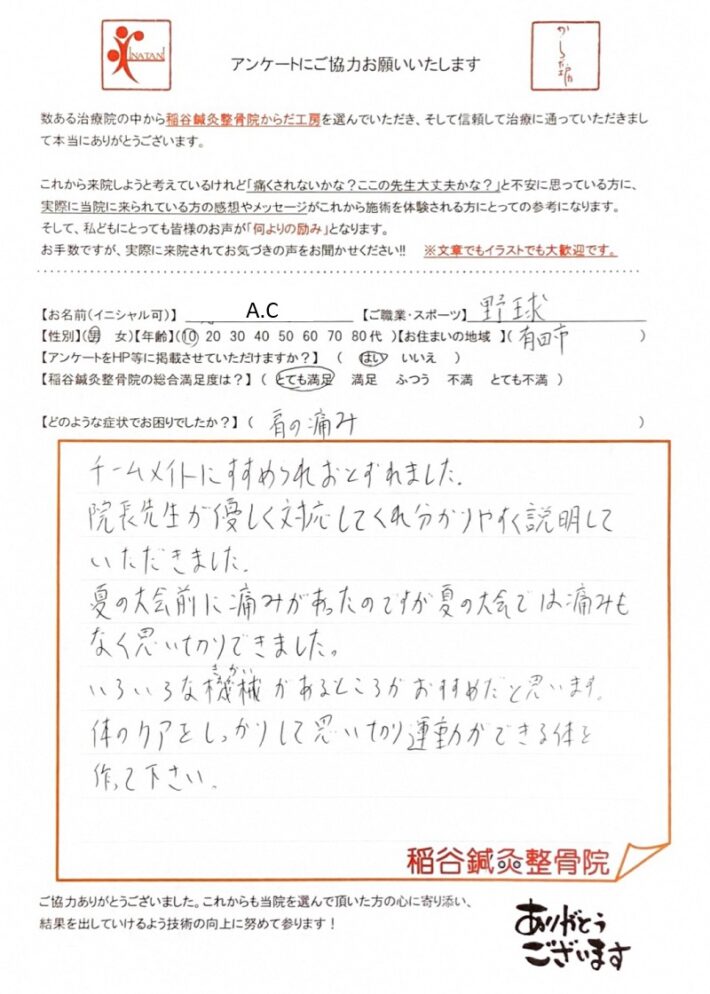 INATANI
アンケートにご協力お願いいたします
からだ工房
数ある治療院の中から稲谷鍼灸整骨院からだ工房を選んでいただき、そして信頼して治療に通っていただきまし
て本当にありがとうございます。
これから来院しようと考えているけれど「痛くされないかな？ここの先生大丈夫かな？」と不安に思っている方に、
実際に当院に来られている方の感想やメッセージがこれから施術を体験される方にとっての参考になります。
そして、私どもにとっても皆様のお声が「何よりの励み」となります。
お手数ですが、実際に来院されてお気づきの声をお聞かせください!! ※文章でもイラストでも大歓迎です。
【お名前(イニシャル可)】 A.C 【ご職業・スポーツ】 野球
【性別】(男 女)【年齢】(10 20 30 40 50 60 70 80代 )【お住まいの地域 】( 有田市 )
【アンケートをHP等に掲載させていただけますか？】 ( はい いいえ )
【稲谷鍼灸整骨院の総合満足度は？】 ( とても満足 満足 ふつう 不満 とても不満 )
【どのような症状でお困りでしたか？】( 肩の痛み )
チームメイトにすすめられおとずれました。
院長先生が優しく対応してくれ分かりやすく説明して
いただきました。
夏の大会前に痛みがあったのですが夏の大会では痛みも
なく思い切りできました。
いろいろな機械があるところがおすすめだと思います。
きかい
体のケアをしっかりして思いっきり運動ができる体を
作って下さい。
稲谷鍼灸整骨院
ご協力ありがとうございました。これからも当院を選んで頂いた方の心に寄り添い、
結果を出していけるよう技術の向上に努めて参ります！
ありがとう
ございます